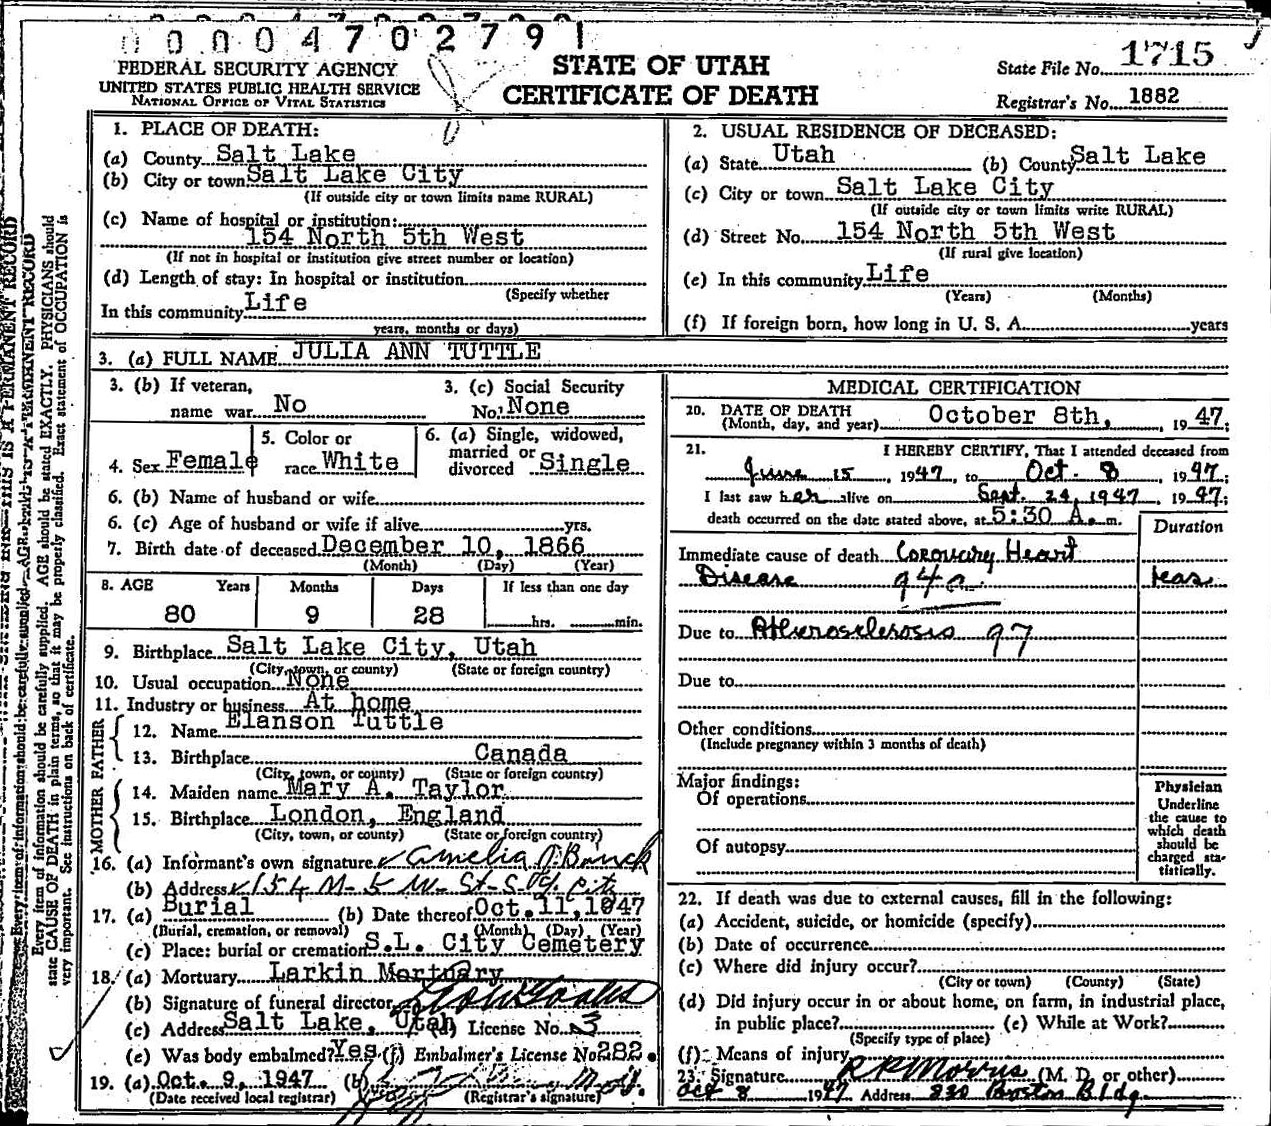 0 0 0 0 4 7 0 2 7 9 1
FEDERAL SECURITY AGENCY
UNITED STATES PUBLIC HEALTH SERVICE
NATIONAL OFFICE OF VITAL STATISTICS
STATE OF UTAH
CERTIFICATE OF DEATH
State File No. 1715
Registrar's No. 1882
1. PLACE OF DEATH:
(a) County Salt Lake
(b) City or town Salt Lake City
(If outside city or town limits name RURAL)
(c) Name of hospital or institution:
154 North 5th West
(If not in hospital or institution give street number or location)
(d) Length of stay: In hospital or institution
(Specify whether
In this community Life
years, months or days)
2. USUAL RESIDENCE OF DECEASED:
(a) State Utah (b) County Salt Lake
(c) City or town Salt Lake City
(If outside city or town limits write RURAL)
(d) Street No. 154 North 5th West
(If rural give location)
(e) In this community Life
(Years) (Months)
(f) If foreign born, how long in U. S. A. years
3. (a) FULL NAME JULIA ANN TUTTLE
3. (b) If veteran,
name war No
3. (c) Social Security
No. None
4. Sex Female
5. Color or
race White
6. (a) Single, widowed,
married or
divorced Single
6. (b) Name of husband or wife
6. (c) Age of husband or wife if alive yrs.
7. Birth date of deceased December 10, 1866
(Month) (Day) (Year)
8. AGE Years Months Days If less than one day
80 9 28 hrs. min.
9. Birthplace Salt Lake City, Utah
(City, town, or county) (State or foreign country)
10. Usual occupation None
11. Industry or business At home
FATHER
12. Name Elanson Tuttle
13. Birthplace Canada
(City, town, or county) (State or foreign country)
MOTHER
14. Maiden name Mary A. Taylor
15. Birthplace London, England
(City, town, or county) (State or foreign country)
16. (a) Informant's own signature Amelia
(b) Address 154 N-5 W- St-S
17. (a) Burial (b) Date thereof Oct.11,1947
(Burial, cremation, or removal) (Month) (Day) (Year)
(c) Place: burial or cremation S.L. City Cemetery
18. (a) Mortuary Larkin Mortuary
(b) Signature of funeral director
(c) Address Salt Lake, Utah (d) License No. 3
(e) Was body embalmed? Yes (f) Embalmer's License No 282.
19. (a) Oct. 9, 1947 (b)
(Date received local registrar) (Registrar's signature)
MEDICAL CERTIFICATION
20. DATE OF DEATH
(Month, day, and year) October 8th, , 1947;
21. I HEREBY CERTIFY, That I attended deceased from
June 15 , 1947, to Oct. 8 , 1947;
I last saw her alive on Sept. 24, 1947 , 1947;
death occurred on the date stated above, at 5:30 A. m.
Duration
Immediate cause of death Coronary Heart
Disease 94a
Due to Atherosclerosis 97
Due to
Other conditions
(Include pregnancy within 3 months of death)
Major findings:
Of operations
Of autopsy
Physician
Underline
the cause to
which death
should be
charged sta-
tistically.
22. If death was due to external causes, fill in the following:
(a) Accident, suicide, or homicide (specify)
(b) Date of occurrence
(c) Where did injury occur?
(City or town) (County) (State)
(d) Did injury occur in or about home, on farm, in industrial place,
in public place? (e) While at Work?
(Specify type of place)
(f) Means of injury
23. Signature R R Morris (M. D. or other)
Oct 8 1947 Address 230 Boston Bldg.
Every item of information should be carefully supplied. AGE should be stated EXACTLY. PHYSICIANS should
state CAUSE OF DEATH in plain terms, so that it may be properly classified. Exact statement of OCCUPATION is
very important. See instructions on back of certificate.